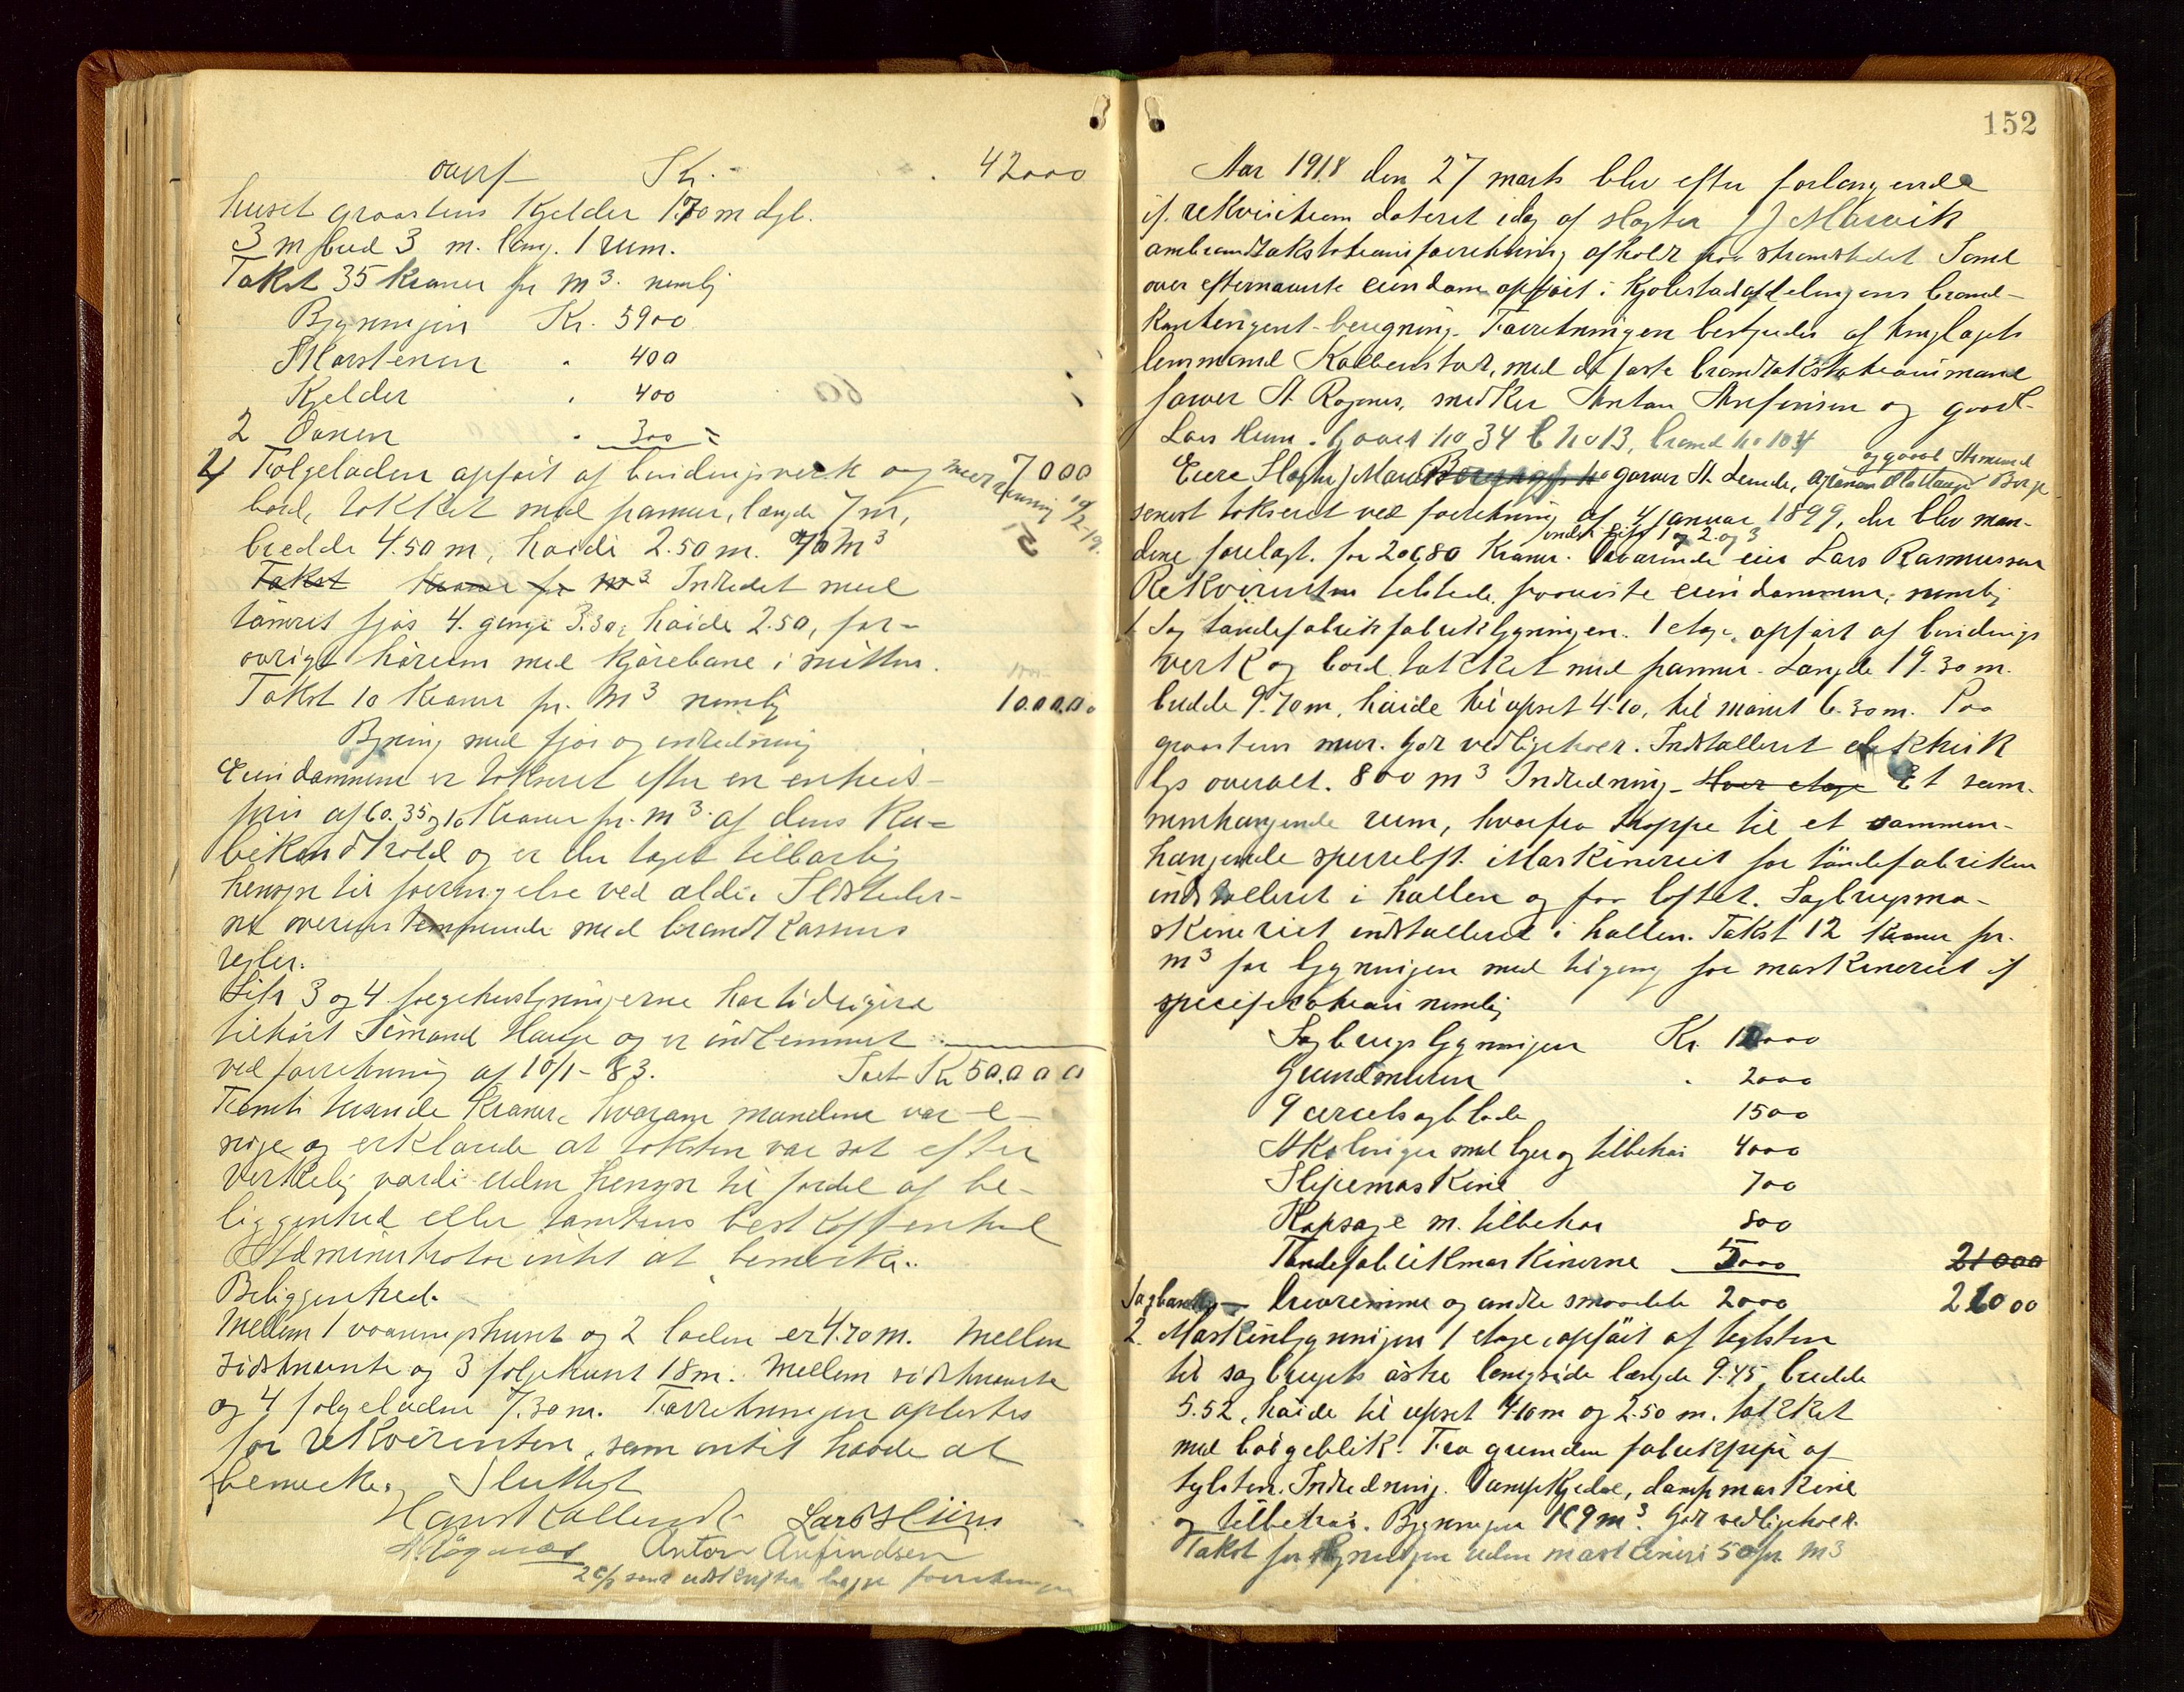 overf Kr. 42000
huset graastens Kjelder 1.70 m dyb.
3 m bred 3 m. lang. 1 rum.
Takst 35 kroner pr m³. nemlig
Bygningen Kr. 5900
Skorstenen " 400
Kjelder " 400
2 Ovnen " 300 =
4 Følgeladen opført af bindingsverk og 7000
bord, tækket med panner, længde 7 m,
bredde 4.50 m, høide 2.50 m. 70 m³
Takst Kroner pr m³ Indredet med
tømret fjøs 4. gange 3.30, høide 2.50, for-
øvrigt hørum med kjørebane i midten.
Takst 10 kroner pr. m³ nemlig 10.00.00
Bygning med fjøs og indredning
Eiendommene er takseret efter en enheds-
pris af 60. 35 og 10 Kroner pr. m³ af dens Ku-
bikindhold og er der taget tilbørlig
hensyn til foringelse ved ælde. Ildsteder-
ne overensstemmende med brandkassens
regler.
Litr 3 og 4 følgehusbygningerne har tidligere
tilhørt Simand Hauge og er indlemmet
ved forretning af 10/1-83. Sset Kr 50.000
Femti tusende Kroner, hvorom mændene var e-
nige og erklærede at taksten var sat efter
verkelig værdi uden hensyn til fordel af be-
liggenhed eller tomtens beskaffenhed
Administrator intet at bemerke..
Beliggenhed.
Mellem 1 vaaningshuset og 2 laden er 4.70 m. Mellem
sidstnævnte og 3 følgehuset 18 m. Mellem sidstnævnte
og 4 følgeladen 7.30 m. Forretningen oplæstes
for rekvirenten, som intet havde at
bemerke. Sluttet
Hans Kallenstad Lars Hiim
A. Rögnæs Anton Anfindsen
152
Aar 1918 den 27 marts blev efter forlangende
if. rekvisition dateret idag af slagter J J Marvik
ombrandtakstationsforretning afholdt paa strandstedet Sand
over efternævnte eiendom opført i Kjølstadafdelingens brand-
kontingent-beregning. Forretningen bestyredes af tinglagets
lensmand Kallenstad, med de faste brandtakstationsmænd
farver A. Rognes, snedker Anton Anfinsen og gaard-
Lars Hiim. Gaard no 34 b no 13, brand no 104
og gaard Asmund
Eiere Slagter J Marvik garver A. Lunde,
senest takseret ved forretning af 4 januar 1899, der blev mæn-
under litr 1 og 2. og 3
dene forelagt. for 20680 Kroner. Daværende eier Lars Rasmussen
Rekvirenten tilstede, paaviste eiendommen, nemlig
1 Sag tøndefabrik fabrikbygningen. 1 etage, opført af bindings
verk og bord tækket med panner. Længde 19.30 m.
bredde 9.70 m, høide til opset 4.10, til mønet 6.30 m. Paa
graastens mur. God vedligeholdt. Installeret elektrisk
lys overalt. 800 m³ Indredning. Hver etage Et sam-
menhængende rum, hvorfra trappe til et sammen-
hængende sperreloft. Maskineriet for tøndefabriken
installeret i hallen og paa loftet. Sagbrugsma-
skineriet installeret i hallen. Takst 12 kroner pr.
m³ for bygningen med tilgang for maskineriet if
specifikation nemlig
Sagbrugsbygningen Kr. 10000
Grundmuren " 2000
9 circelsagblade 1500
Akslinger med lger og tilbehør 4000
Slipemaskine 700
Kapsage m. tilbehør 800
Tøndefabrikmaskinerne 5000 21000
drivremme og andre smaadele 2000 21000
2. Maskinbygningen 1 etage, opført af teglsten
til sagbrugets østre langside længde 9.45, bredde
5.52, høide til opset 4.10 m og 2.50 m. tækket
med bølgeblik. Fra grunden fabrikpipe af
teglsten. Indredning. Dampkjedel, dampmaskine
og tilbehør. Bygningen 169 m³. God vedligeholdt.
Takst for bygningen uden maskineri 50 pr m³